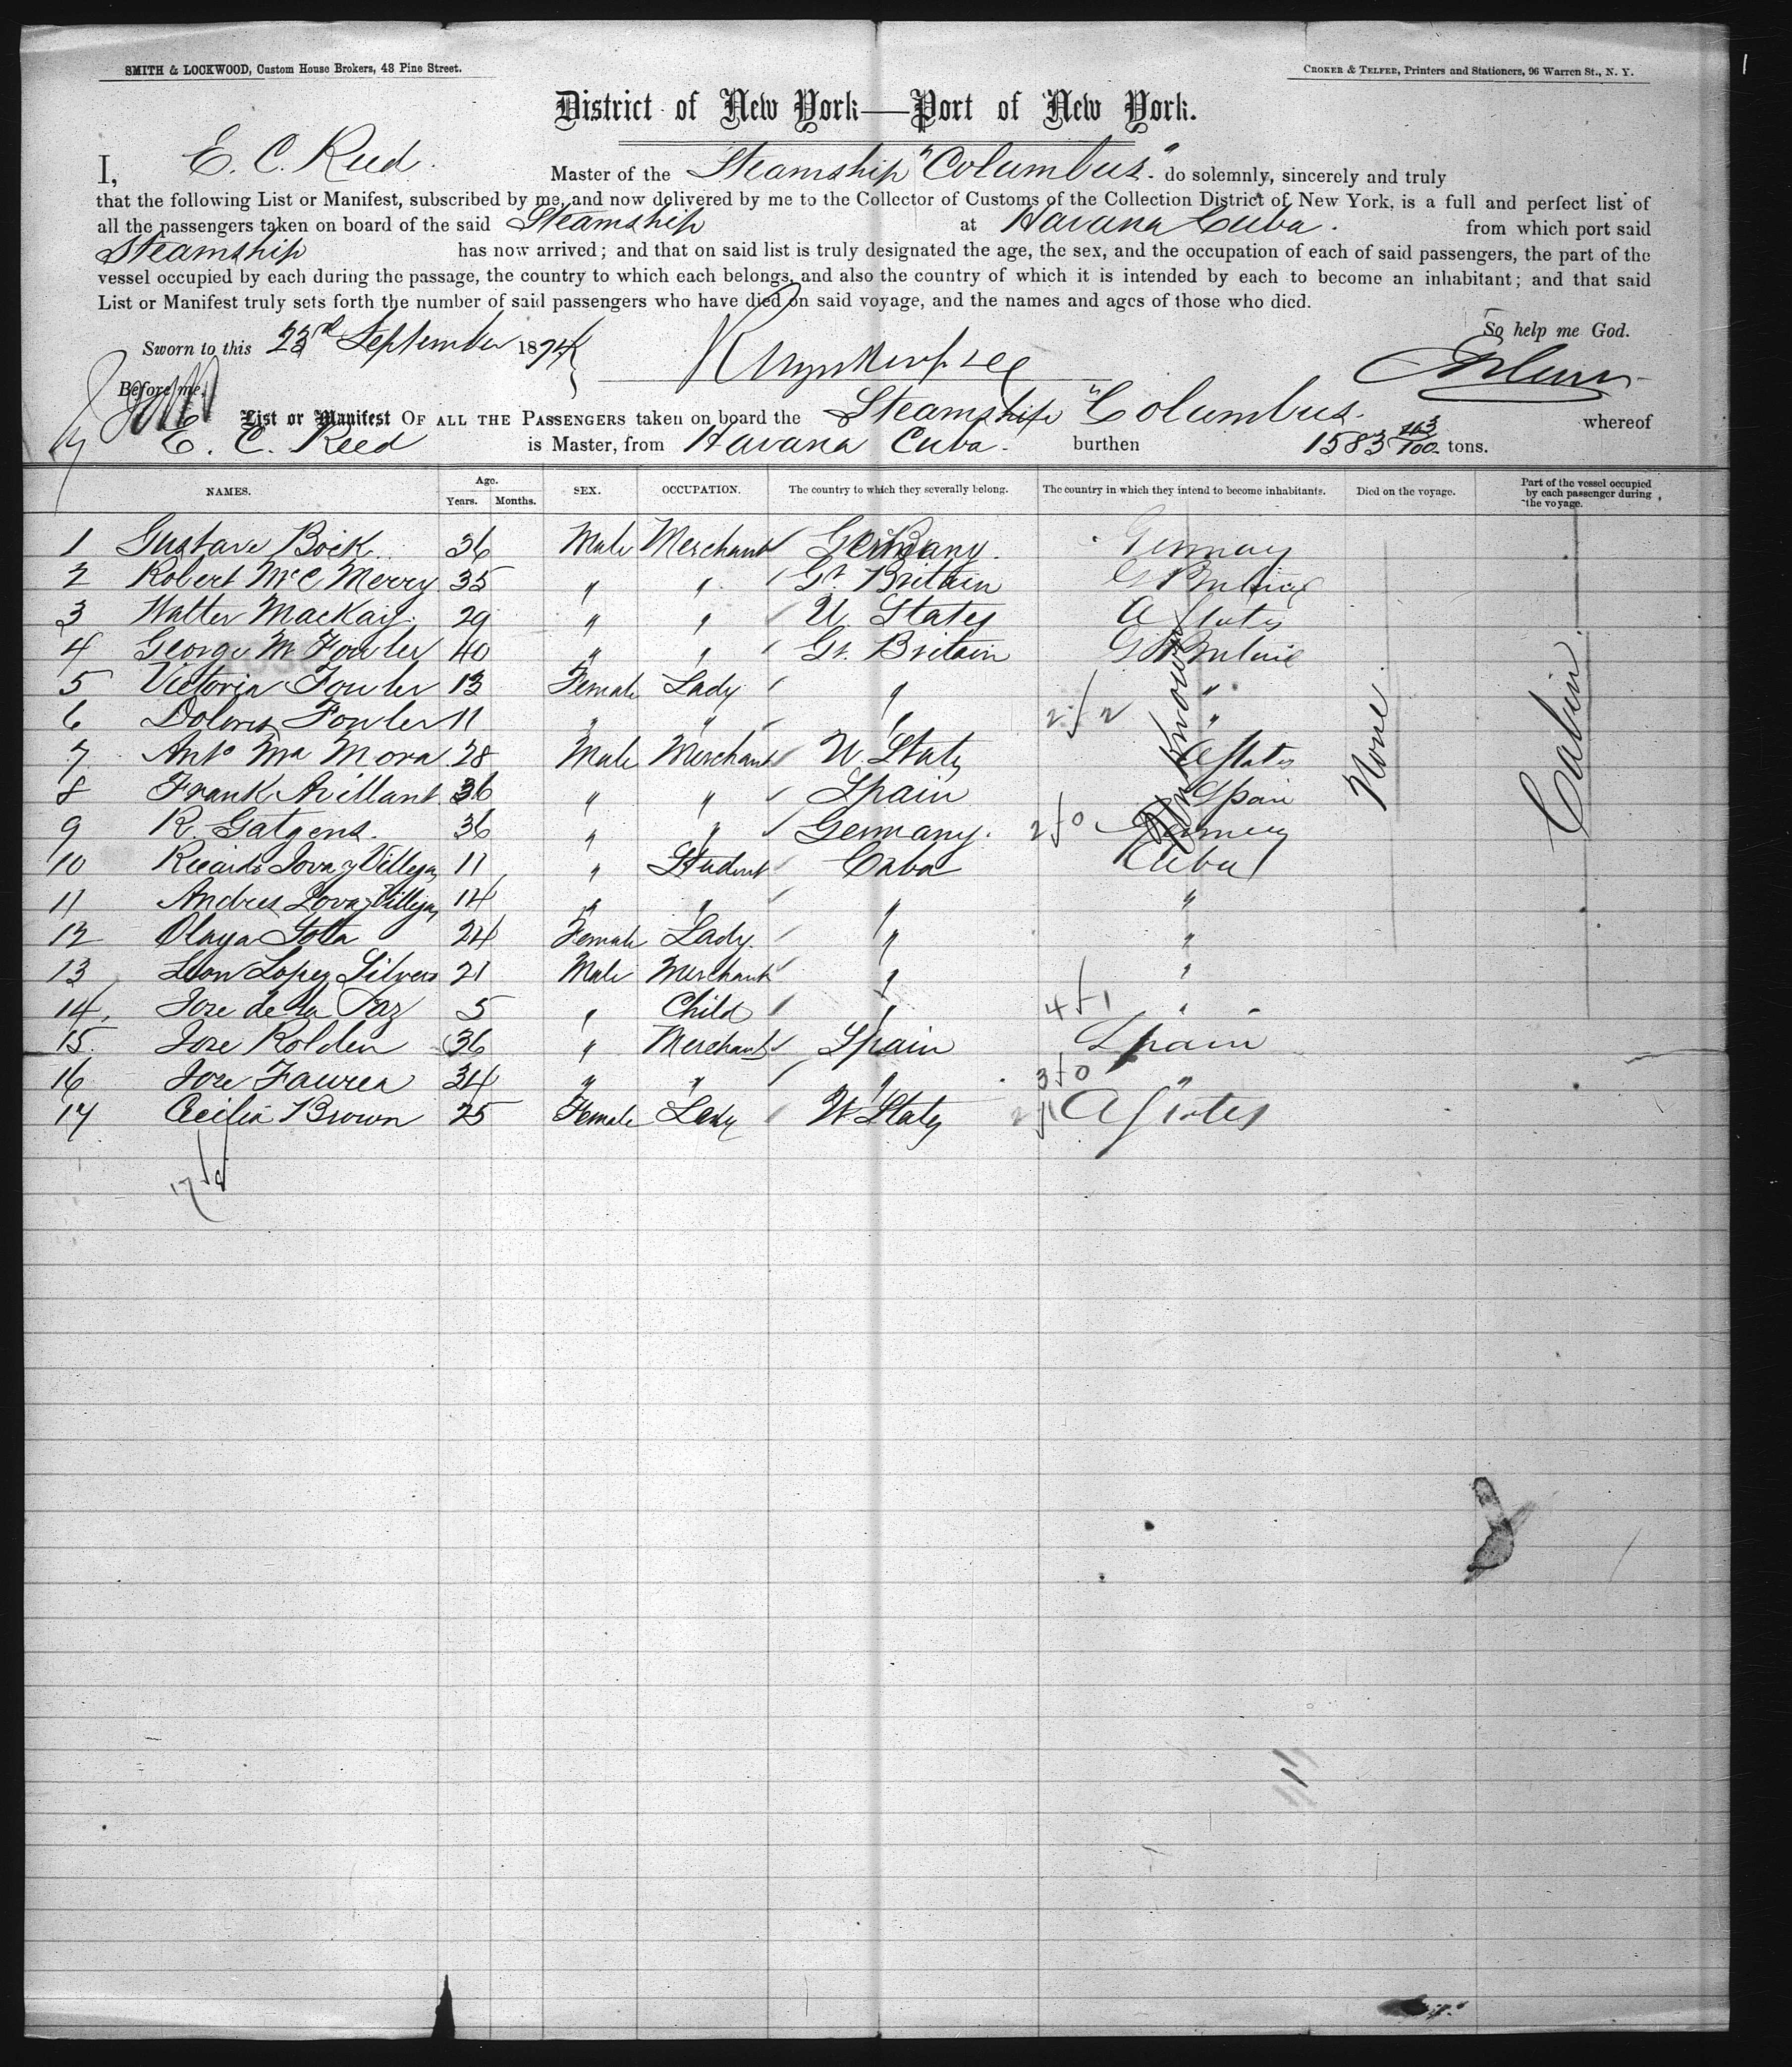 SMITH & LOCKWOOD, Custom House Brokers, 43 Pine Street. CROKER & TELFER, Printers and Stationers, 96 Warren St., N. Y.
District of New York—Port of New York.
I, E. C. Reed. Master of the Steamship "Columbus" do solemnly, sincerely and truly
that the following List or Manifest, subscribed by me, and now delivered by me to the Collector of Customs of the Collection District of New York, is a full and perfect list of
all the passengers taken on board of the said Steamship at Havana Cuba. from which port said
Steamship has now arrived; and that on said list is truly designated the age, the sex, and the occupation of each of said passengers, the part of the
vessel occupied by each during the passage, the country to which each belongs, and also the country of which it is intended by each to become an inhabitant; and that said
List or Manifest truly sets forth the number of said passengers who have died on said voyage, and the names and ages of those who died.
So help me God.
Sworn to this 23rd September 1874
Before me.
List or Manifest OF ALL THE PASSENGERS taken on board the Steamship "Columbus. whereof
E. C. Reed is Master, from Havana Cuba. burthen 1583 tons.
NAMES. Age. Years. Months. SEX. OCCUPATION. The country to which they severally belong. The country in which they intend to become inhabitants. Died on the voyage. Part of the vessel occupied by each passenger during the voyage.
1 Gustave Bock 36 Male Merchant Germany. Germany
2 Robert McC Merry 35 " " Gt. Britain G Britain
3 Walter Mackay 29 " " U States U States
4 George M Fowler 40 " " Gt. Britain G Britain
5 Victoria Fowler 13 Female Lady " "
6 Dolores Fowler 11 " " " "
7 Anto Ma Mora 28 Male Merchant U. States U States
8 Frank Avillant 36 " " Spain Spain
9 R. Gatgens. 36 " " Germany. Germany
10 Ricardo Jova y Villegas 11 " Student Cuba Cuba
11 Andres Jova y Villegas 14 " " " "
12 Olaya Sotta 24 Female Lady " "
13 Leon Lopez Silvero 21 Male Merchant " "
14 Jose de la Paz 5 " Child " "
15 Jose Rolden 36 " Merchant Spain Spain
16 Jose Faurea 34 " " " "
17 Cecilia Brown 25 Female Lady U States U States
Unknown
None
Cabin.